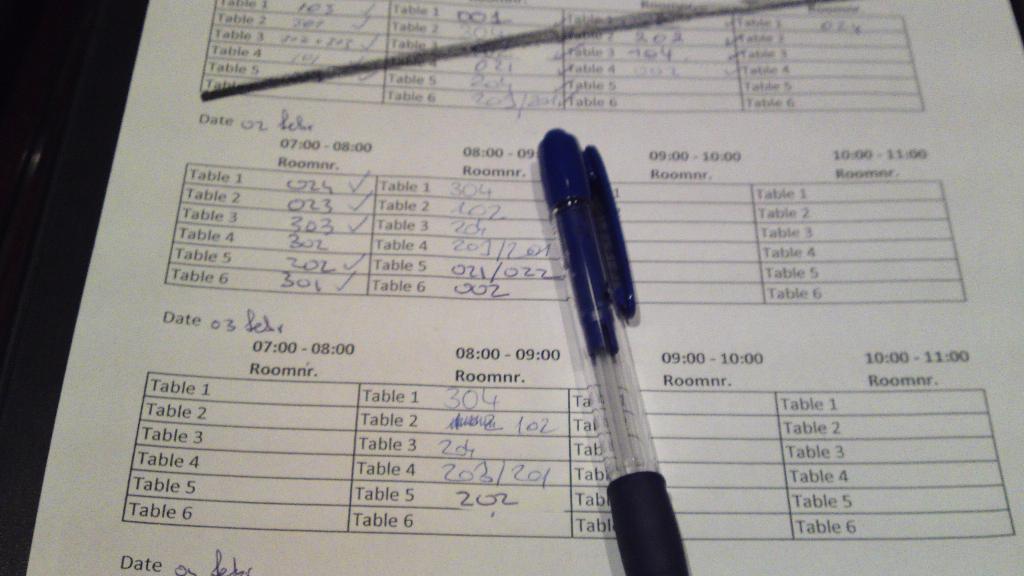 Table 1 103 ✓ Table 1 001 Table 1 Table 1 024
Table 2 ✓ Table 2 304 Table 2 202 Table 2
Table 3 ✓ Table 3 104 Table 3
Table 4 Table 4 002 Table 4
Table 5 Table 5 204 Table 5 Table 5
Table 6 203/201 Table 6 Table 6
Date 02 febr
07:00 - 08:00 08:00 - 09 09:00 - 10:00 10:00 - 11:00
Roomnr. Roomnr. Roomnr. Roomnr.
Table 1 024 ✓ Table 1 304 1 Table 1
Table 2 023 ✓ Table 2 102 Table 2
Table 3 303 ✓ Table 3 204 Table 3
Table 4 302 Table 4 203/201 Table 4
Table 5 202 ✓ Table 5 021/022 Table 5
Table 6 301 ✓ Table 6 002 Table 6
Date 03 febr
07:00 - 08:00 08:00 - 09:00 09:00 - 10:00 10:00 - 11:00
Roomnr. Roomnr. Roomnr. Roomnr.
Table 1 Table 1 304 Ta 1 Table 1
Table 2 Table 2 102 Tab Table 2
Table 3 Table 3 204 Tab Table 3
Table 4 Table 4 203/201 Tab Table 4
Table 5 Table 5 202 Tab Table 5
Table 6 Table 6 Tabl Table 6
Date 04 febr